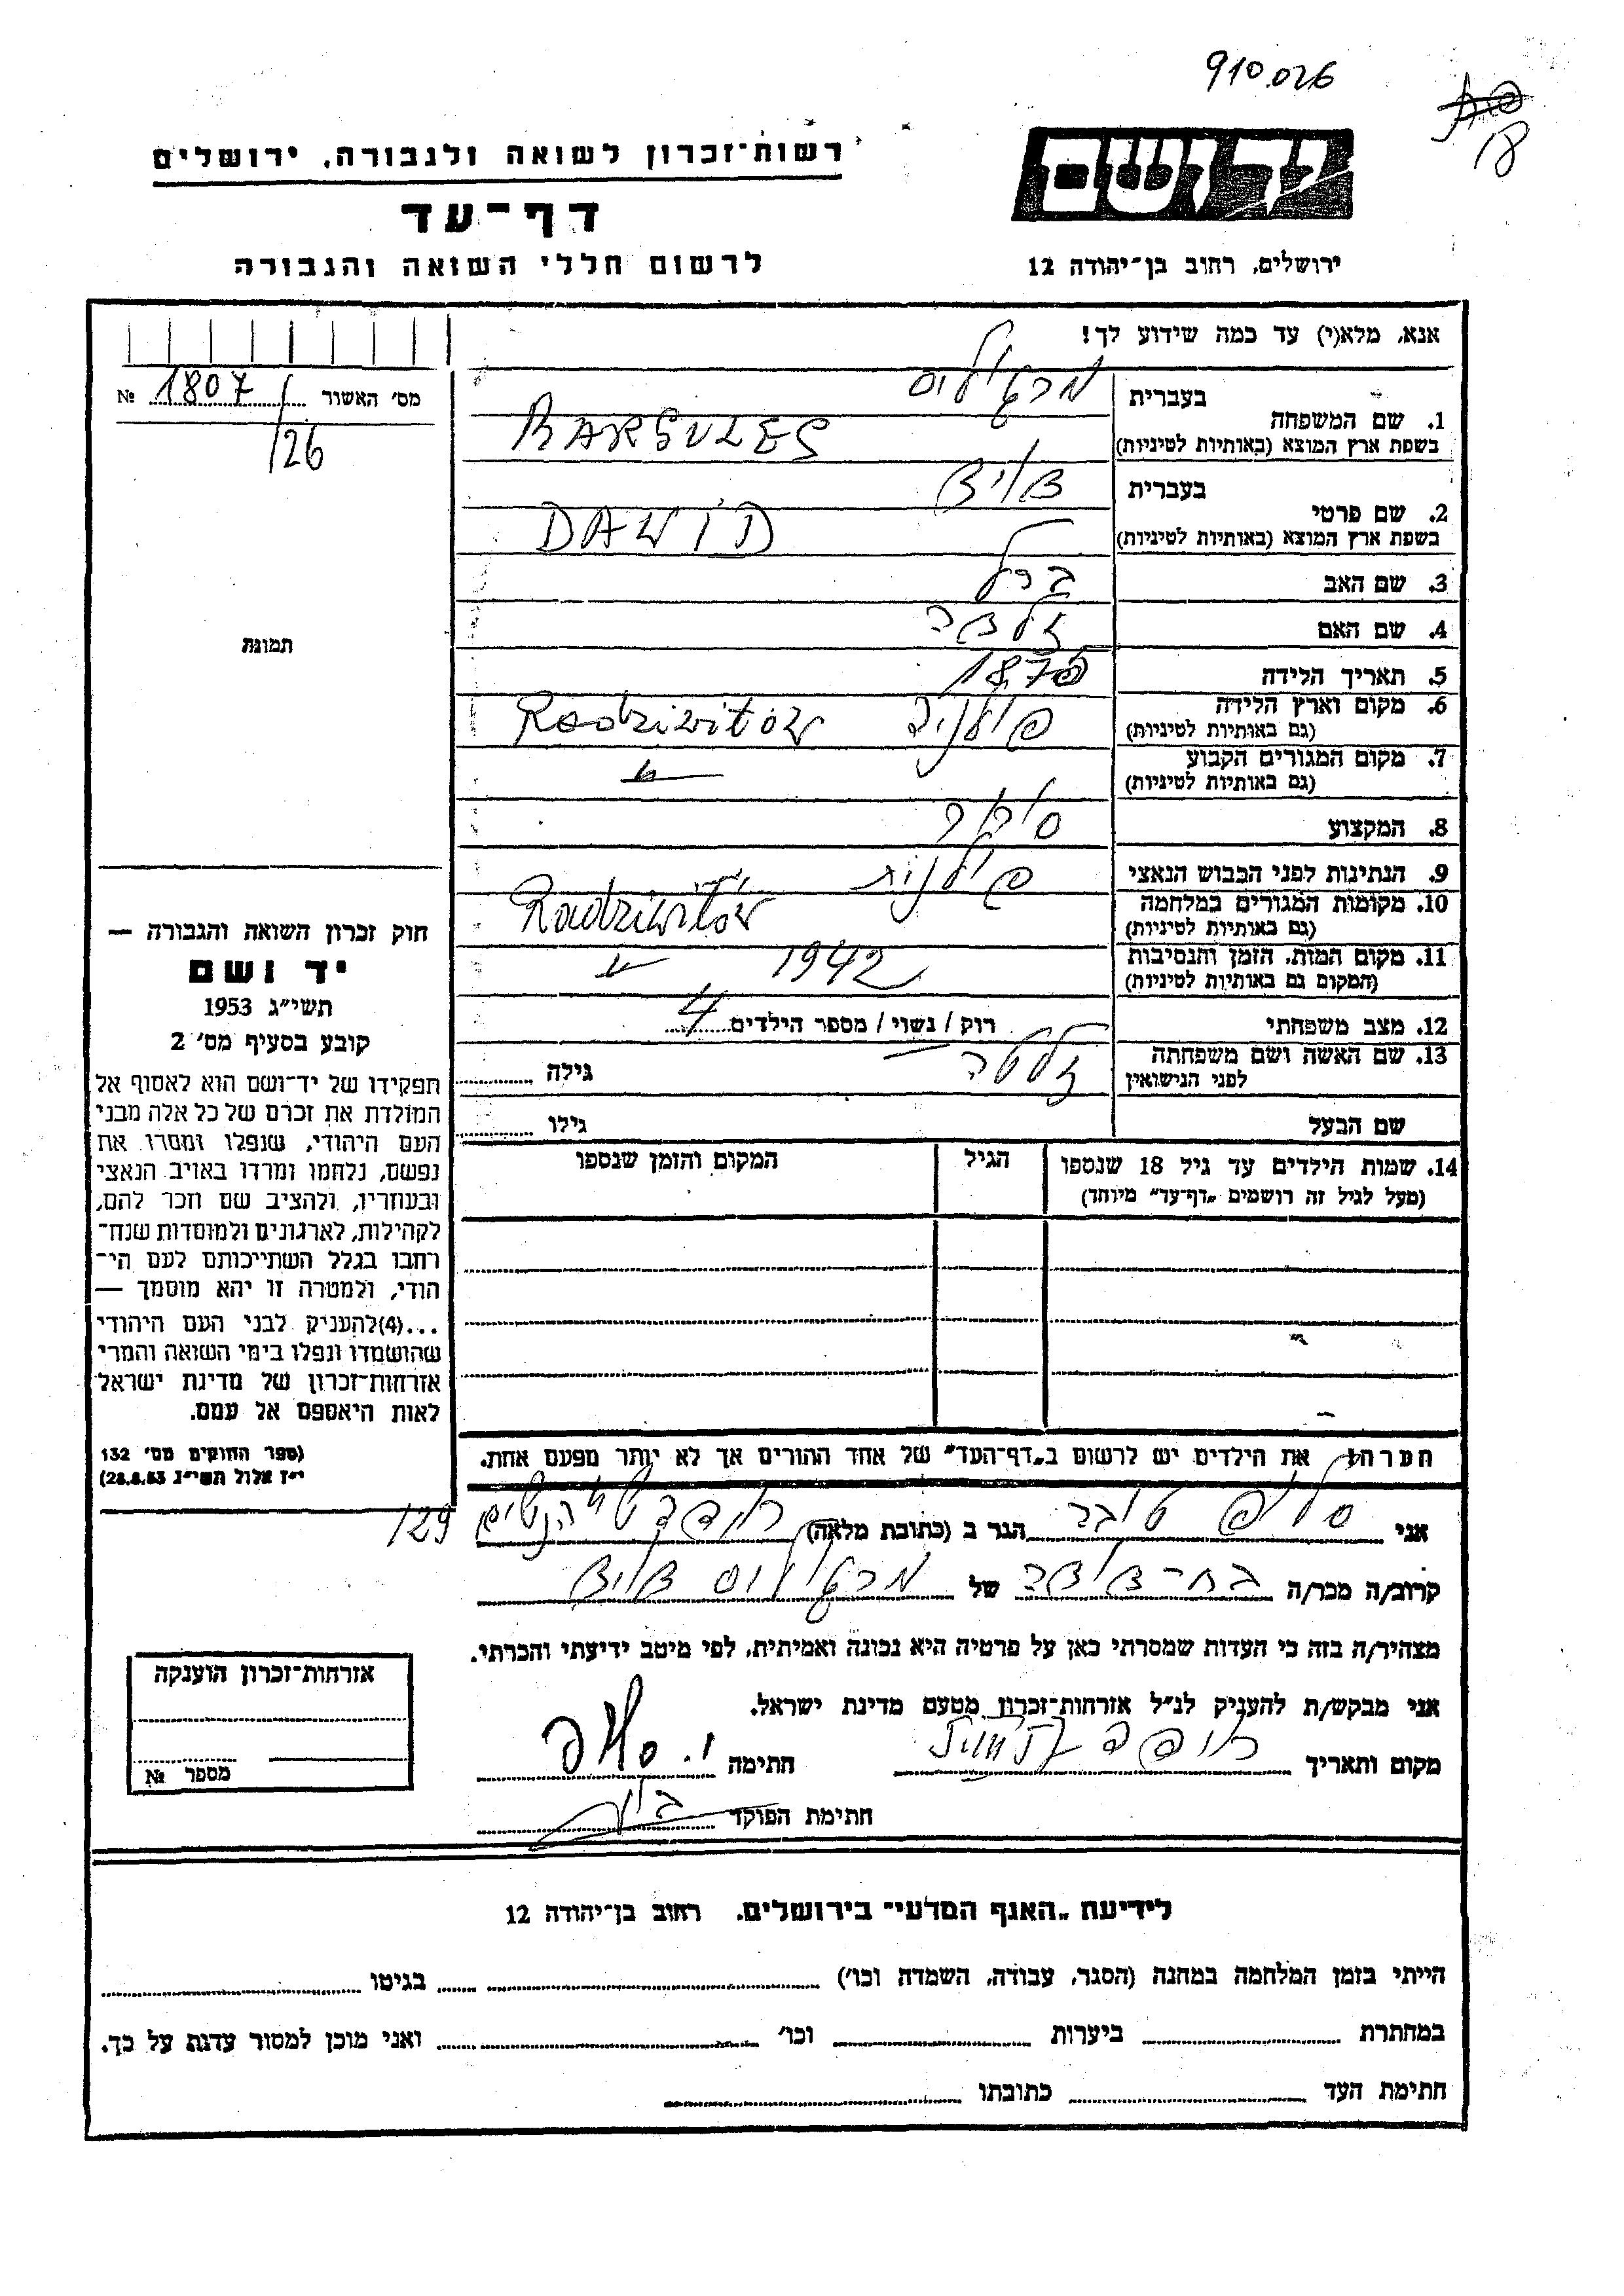 910.026
18
רשות־זכרון לשואה ולגבורה, ירושלים
יד ושם
דף־עד
לרשום חללי השואה והגבורה
ירושלים, רחוב בן־יהודה 12
אנא, מלא(י) עד כמה שידוע לך!
מס׳ האשור № 1807
/26
תמונה
1. שם המשפחה בעברית
בשפת ארץ המוצא (באותיות לטיניות)
2. שם פרטי בעברית דויד
בשפת ארץ המוצא (באותיות לטיניות) DAWID
3. שם האב ברל
4. שם האם
5. תאריך הלידה
6. מקום וארץ הלידה פולניה
(גם באותיות לטיניות)
7. מקום המגורים הקבוע
(גם באותיות לטיניות)
8. המקצוע סוחר
9. הנתינות לפני הכבוש הנאצי פולנית
10. מקומות המגורים במלחמה
(גם באותיות לטיניות)
11. מקום המות, הזמן והנסיבות 1942
(המקום גם באותיות לטיניות)
12. מצב משפחתי רוק / נשוי / מספר הילדים 4
13. שם האשה ושם משפחתה
לפני הנישואין גילה
שם הבעל גילו
14. שמות הילדים עד גיל 18 שנספו הגיל המקום והזמן שנספו
(מעל לגיל זה רושמים „דף־עד״ מיוחד)
הערה: את הילדים יש לרשום ב„דף־העד״ של אחד ההורים אך לא יותר מפעם אחת.
חוק זכרון השואה והגבורה —
יד ושם
תשי״ג 1953
קובע בסעיף מס׳ 2
תפקידו של יד־ושם הוא לאסוף אל
המולדת את זכרם של כל אלה מבני
העם היהודי, שנפלו ומסרו את
נפשם, נלחמו ומרדו באויב הנאצי
ובעוזריו, ולהציב שם וזכר להם,
לקהילות, לארגונים ולמוסדות שנח־
רבו בגלל השתייכותם לעם הי־
הודי, ולמטרה זו יהא מוסמך —
...(4) להעניק לבני העם היהודי
שהושמדו ונפלו בימי השואה והמרי
אזרחות־זכרון של מדינת ישראל
לאות היאספם אל עמם.
(ספר החוקים מס׳ 132
י״ז אלול תשי״ג 28.8.53)
אני טובה הגר ב (כתובת מלאה) 129
קרוב/ה מכר/ה בת־דודה של דויד
מצהיר/ה בזה כי העדות שמסרתי כאן על פרטיה היא נכונה ואמיתית, לפי מיטב ידיעתי והכרתי.
אני מבקש/ת להעניק לנ״ל אזרחות־זכרון מטעם מדינת ישראל.
מקום ותאריך חתימה
חתימת הפוקד
אזרחות־זכרון הוענקה
מספר №
לידיעת „האגף המדעי״ בירושלים, רחוב בן־יהודה 12
הייתי בזמן המלחמה במחנה (הסגר, עבודה, השמדה וכו׳) בגיטו
במחתרת ביערות וכו׳ ואני מוכן למסור עדות על כך.
חתימת העד כתובתו